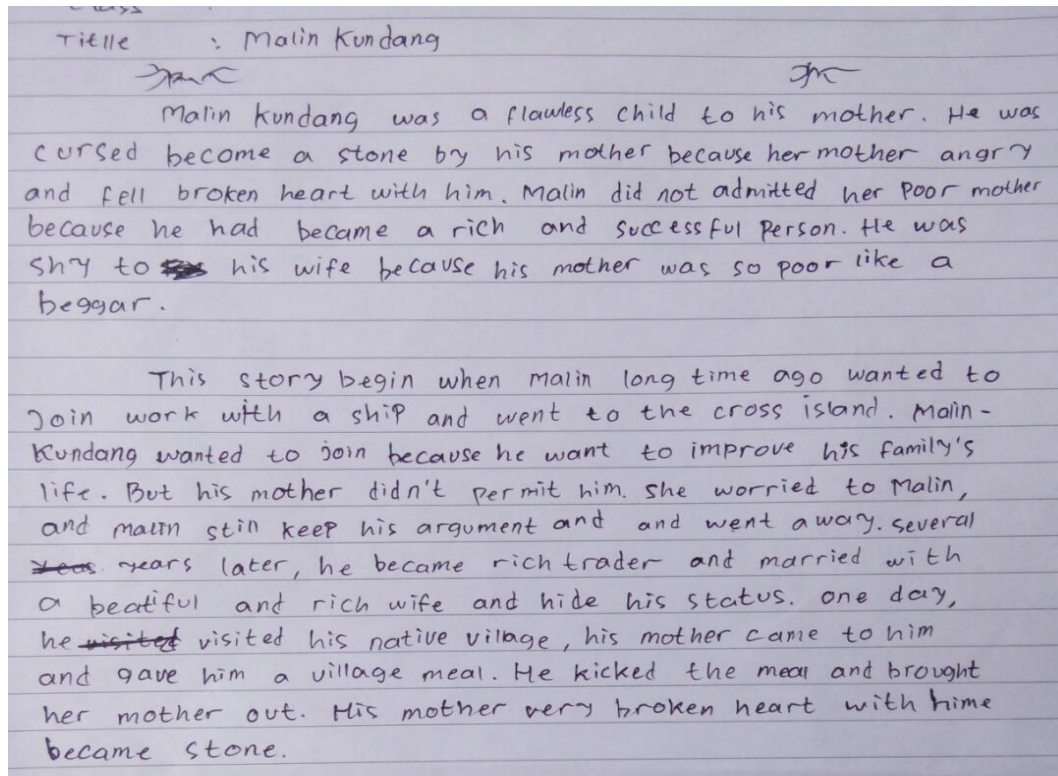 Titlle : Malin Kundang
Malin Kundang was a flawless child to his mother. He was
cursed become a stone by his mother because her mother angry
and fell broken heart with him. Malin did not admitted her poor mother
because he had became a rich and successful person. He was
shy to his wife because his mother was so poor like a
beggar.
This story begin when malin long time ago wanted to
Join work with a ship and went to the cross island. Malin-
Kundang wanted to join because he want to improve his family's
life. But his mother didn't permit him. She worried to Malin,
and malin still keep his argument and and went away. several
years later, he became rich trader and married with
a beatiful and rich wife and hide his status. one day,
he visited his native village, his mother came to him
and gave him a village meal. He kicked the meal and brought
her mother out. His mother very broken heart with hime
became stone.